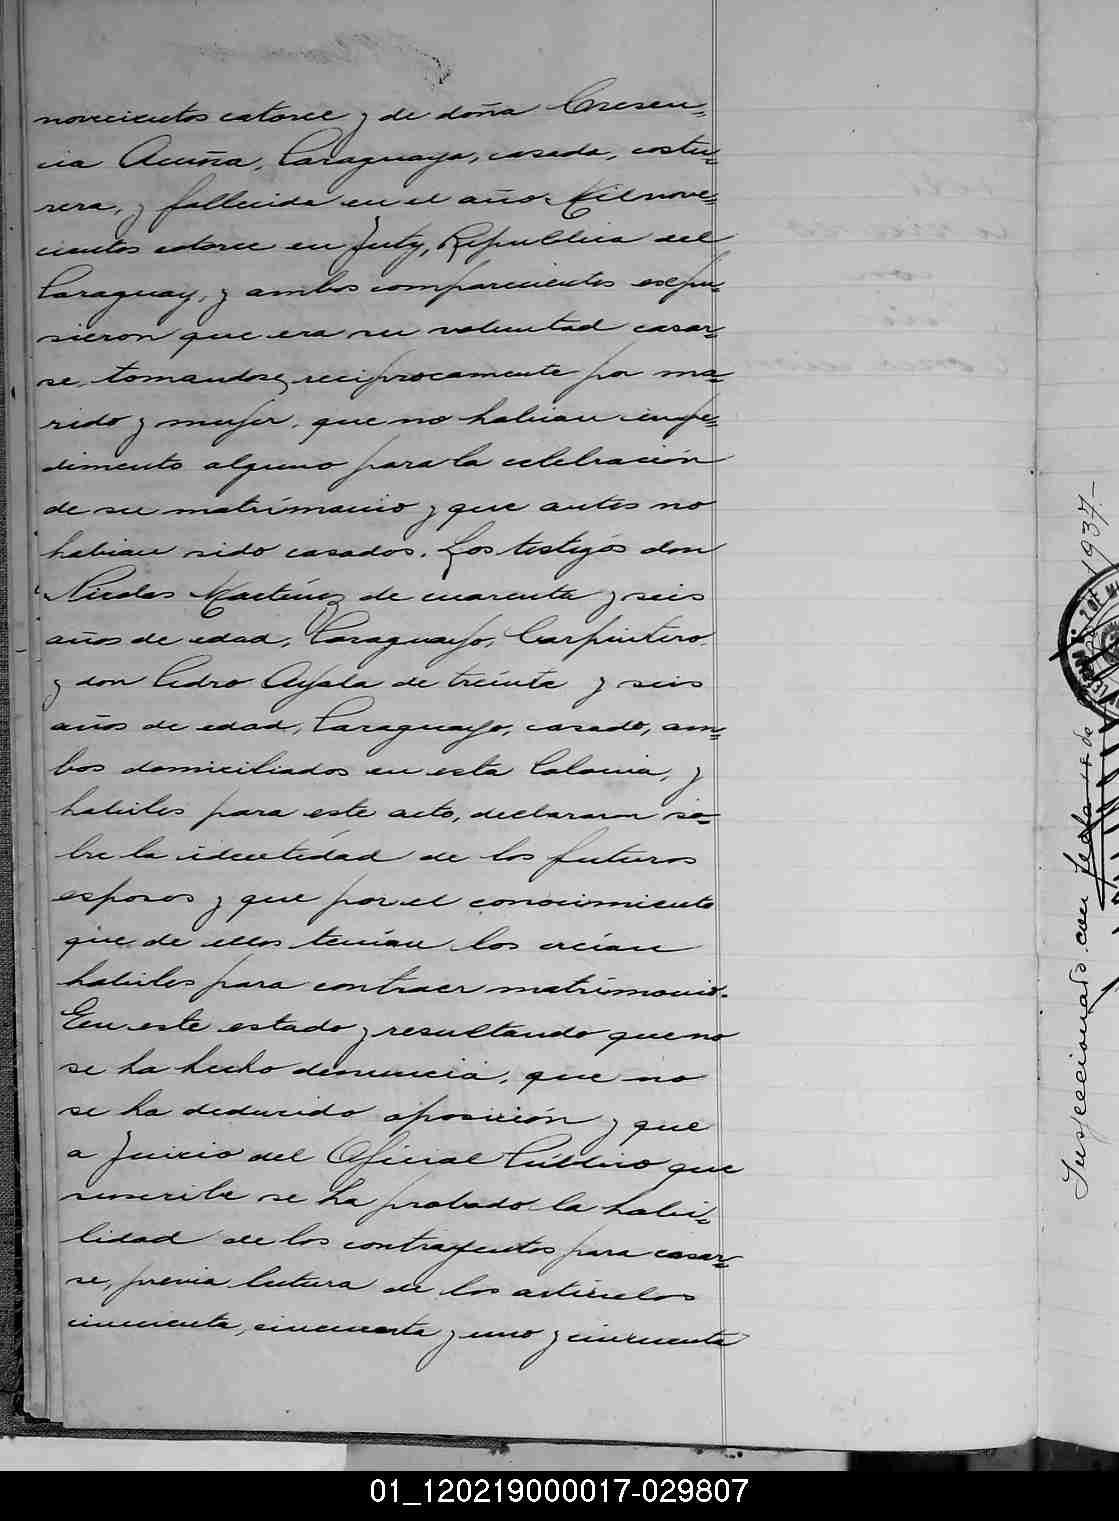 novecientos catorce y de doña Cresen-
cia Acuña, Paraguaya, casada, costu-
rera, y fallecida en el año Mil nove-
cientos catorce en Yuty, República del
Paraguay, y ambos comparecientes expu-
sieron que era su voluntad casar-
se, tomandose reciprocamente por ma-
rido y mujer, que no habian impe-
dimento alguno para la celebración
de su matrimonio y que antes no
habian sido casados. Los testigos don
Nicolas Martínez de cuarenta y seis
años de edad, Paraguayo, Carpintero.
y don Pedro Ayala de treinta y seis
años de edad, Paraguayo, casado, am-
bos domiciliados en esta Colonia, y
habiles para este acto, declararon so-
bre la identidad de los futuros
esposos y que por el conocimiento
que de ellos tenían los creían
habiles para contraer matrimonio.
En este estado y resultando que no
se ha hecho denuncia, que no
se ha deducido oposición y que
a juicio del Oficial Público que
suscribe se ha probado la habi-
lidad de los contrayentes para casar-
se, previa lectura de los artículos
cincuenta, cincuenta y uno y cincuenta
Inspeccionado con fecha 1937.-
01_120219000017-029807